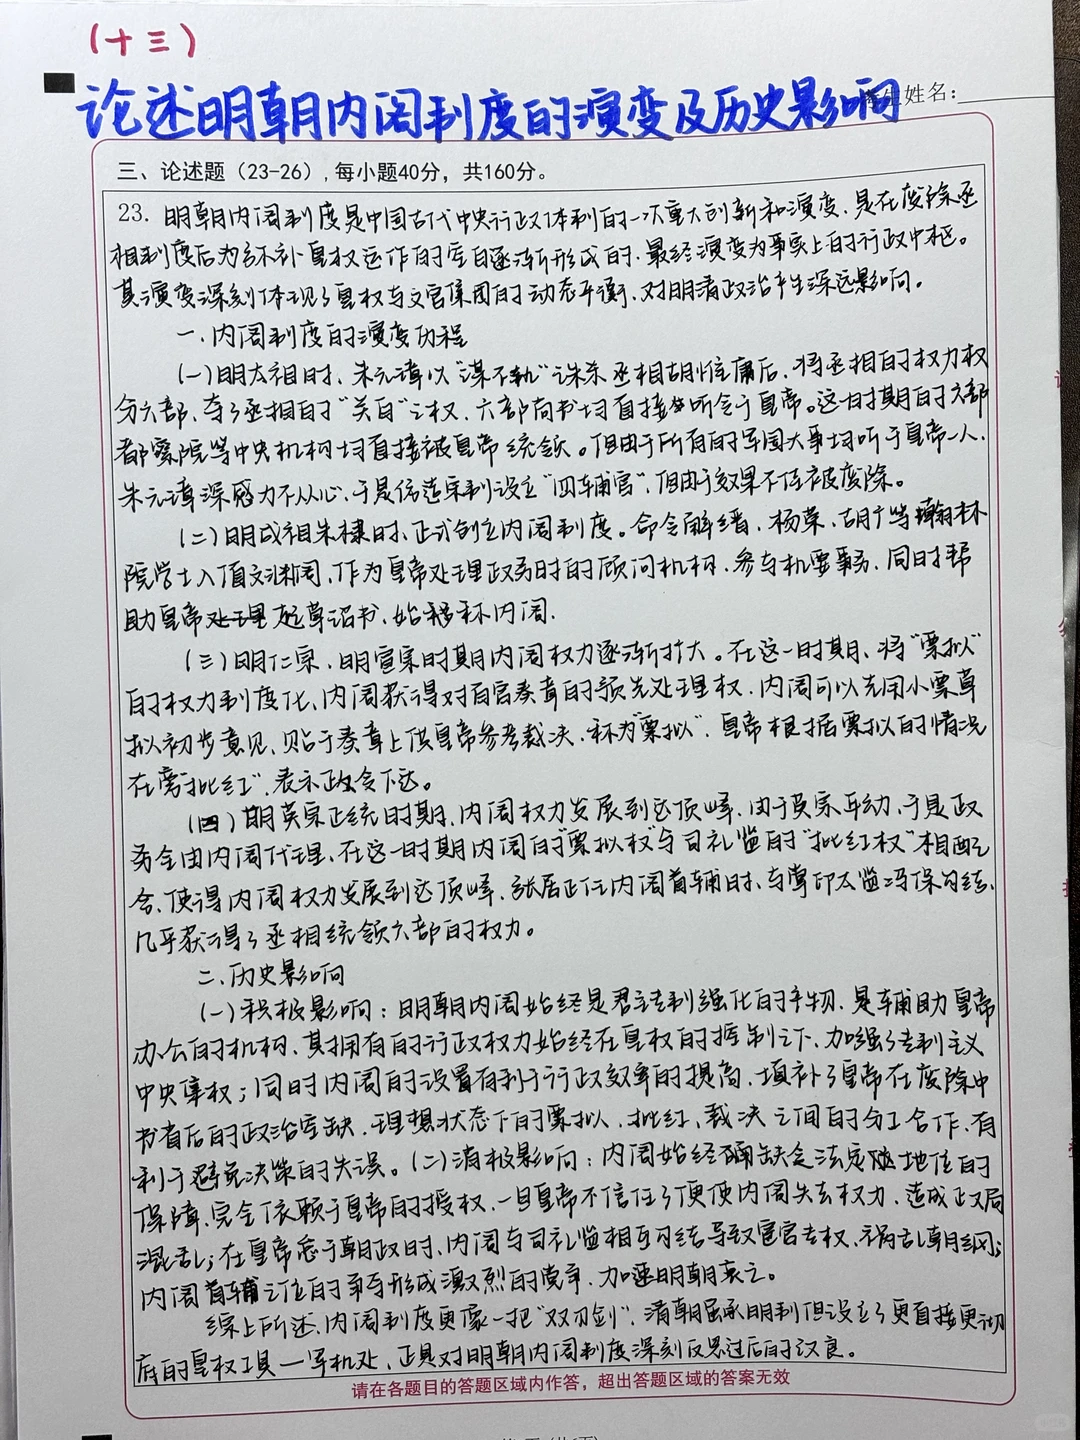 (十三)
论述明朝内阁制度的演变及历史影响
考生姓名：
三、论述题（23-26），每小题40分，共160分。
23. 明朝内阁制度是中国古代中央行政体制的一次重大创新和演变，是在废除丞
相制度后为弥补皇权运作的空白逐渐形成的，最终演变为事实上的行政中枢。
其演变深刻体现了皇权与文官集团的动态平衡，对明清政治产生深远影响。
一、内阁制度的演变历程
(一)明太祖时，朱元璋以"谋不轨"诛杀丞相胡惟庸后，将丞相的权力权
分六部，夺了丞相的"关白"之权，六部尚书均直接听令于皇帝。这一时期的六部
都察院等中央机构均直接被皇帝统领。但由于所有的军国大事均听于皇帝一人，
朱元璋深感力不从心，于是仿造宋制设立"四辅官"，但由于效果不佳被废除。
(二)明成祖朱棣时，正式创立内阁制度。命令解缙、杨荣、胡广等翰林
院学士入值文渊阁，作为皇帝处理政务时的顾问机构，参与机要事务，同时帮
助皇帝处理起草诏书，始称内阁。
(三)明仁宗、明宣宗时期内阁权力逐渐扩大。在这一时期，将"票拟"
的权力制度化，内阁获得对百官奏章的预先处理权，内阁可以先用小票草
拟初步意见，贴于奏章上供皇帝参考裁决，称为"票拟"，皇帝根据票拟的情况
在旁"批红"，表示政令下达。
(四)明英宗正统时期，内阁权力发展到达顶峰，由于英宗年幼，于是政
务全由内阁代理，在这一时期内阁的"票拟权"与司礼监的"批红权"相配
合，使得内阁权力发展到达顶峰，张居正任内阁首辅时，与掌印太监冯保勾结，
几乎获得了丞相统领六部的权力。
二、历史影响
(一)积极影响：明朝内阁始终是君主专制强化的产物，是辅助皇帝
办公的机构，其拥有的行政权力始终在皇权的控制之下，加强了专制主义
中央集权；同时内阁的设置有利于行政效率的提高，填补了皇帝在废除中
书省后的政治空缺，理想状态下的票拟、批红、裁决之间的分工合作，有
利于避免决策的失误。(二)消极影响：内阁始终缺乏法定地位的
保障，完全依赖于皇帝的授权，一旦皇帝不信任了便使内阁失去权力，造成政局
混乱；在皇帝怠于朝政时，内阁与司礼监相互勾结导致宦官专权，祸乱朝纲；
内阁首辅之位的争夺形成激烈的党争，加速明朝衰亡。
综上所述，内阁制度更像一把"双刃剑"，清朝虽承明制但设立了更直接更彻
底的皇权工具—军机处，正是对明朝内阁制度深刻反思过后的改良。
请在各题目的答题区域内作答，超出答题区域的答案无效